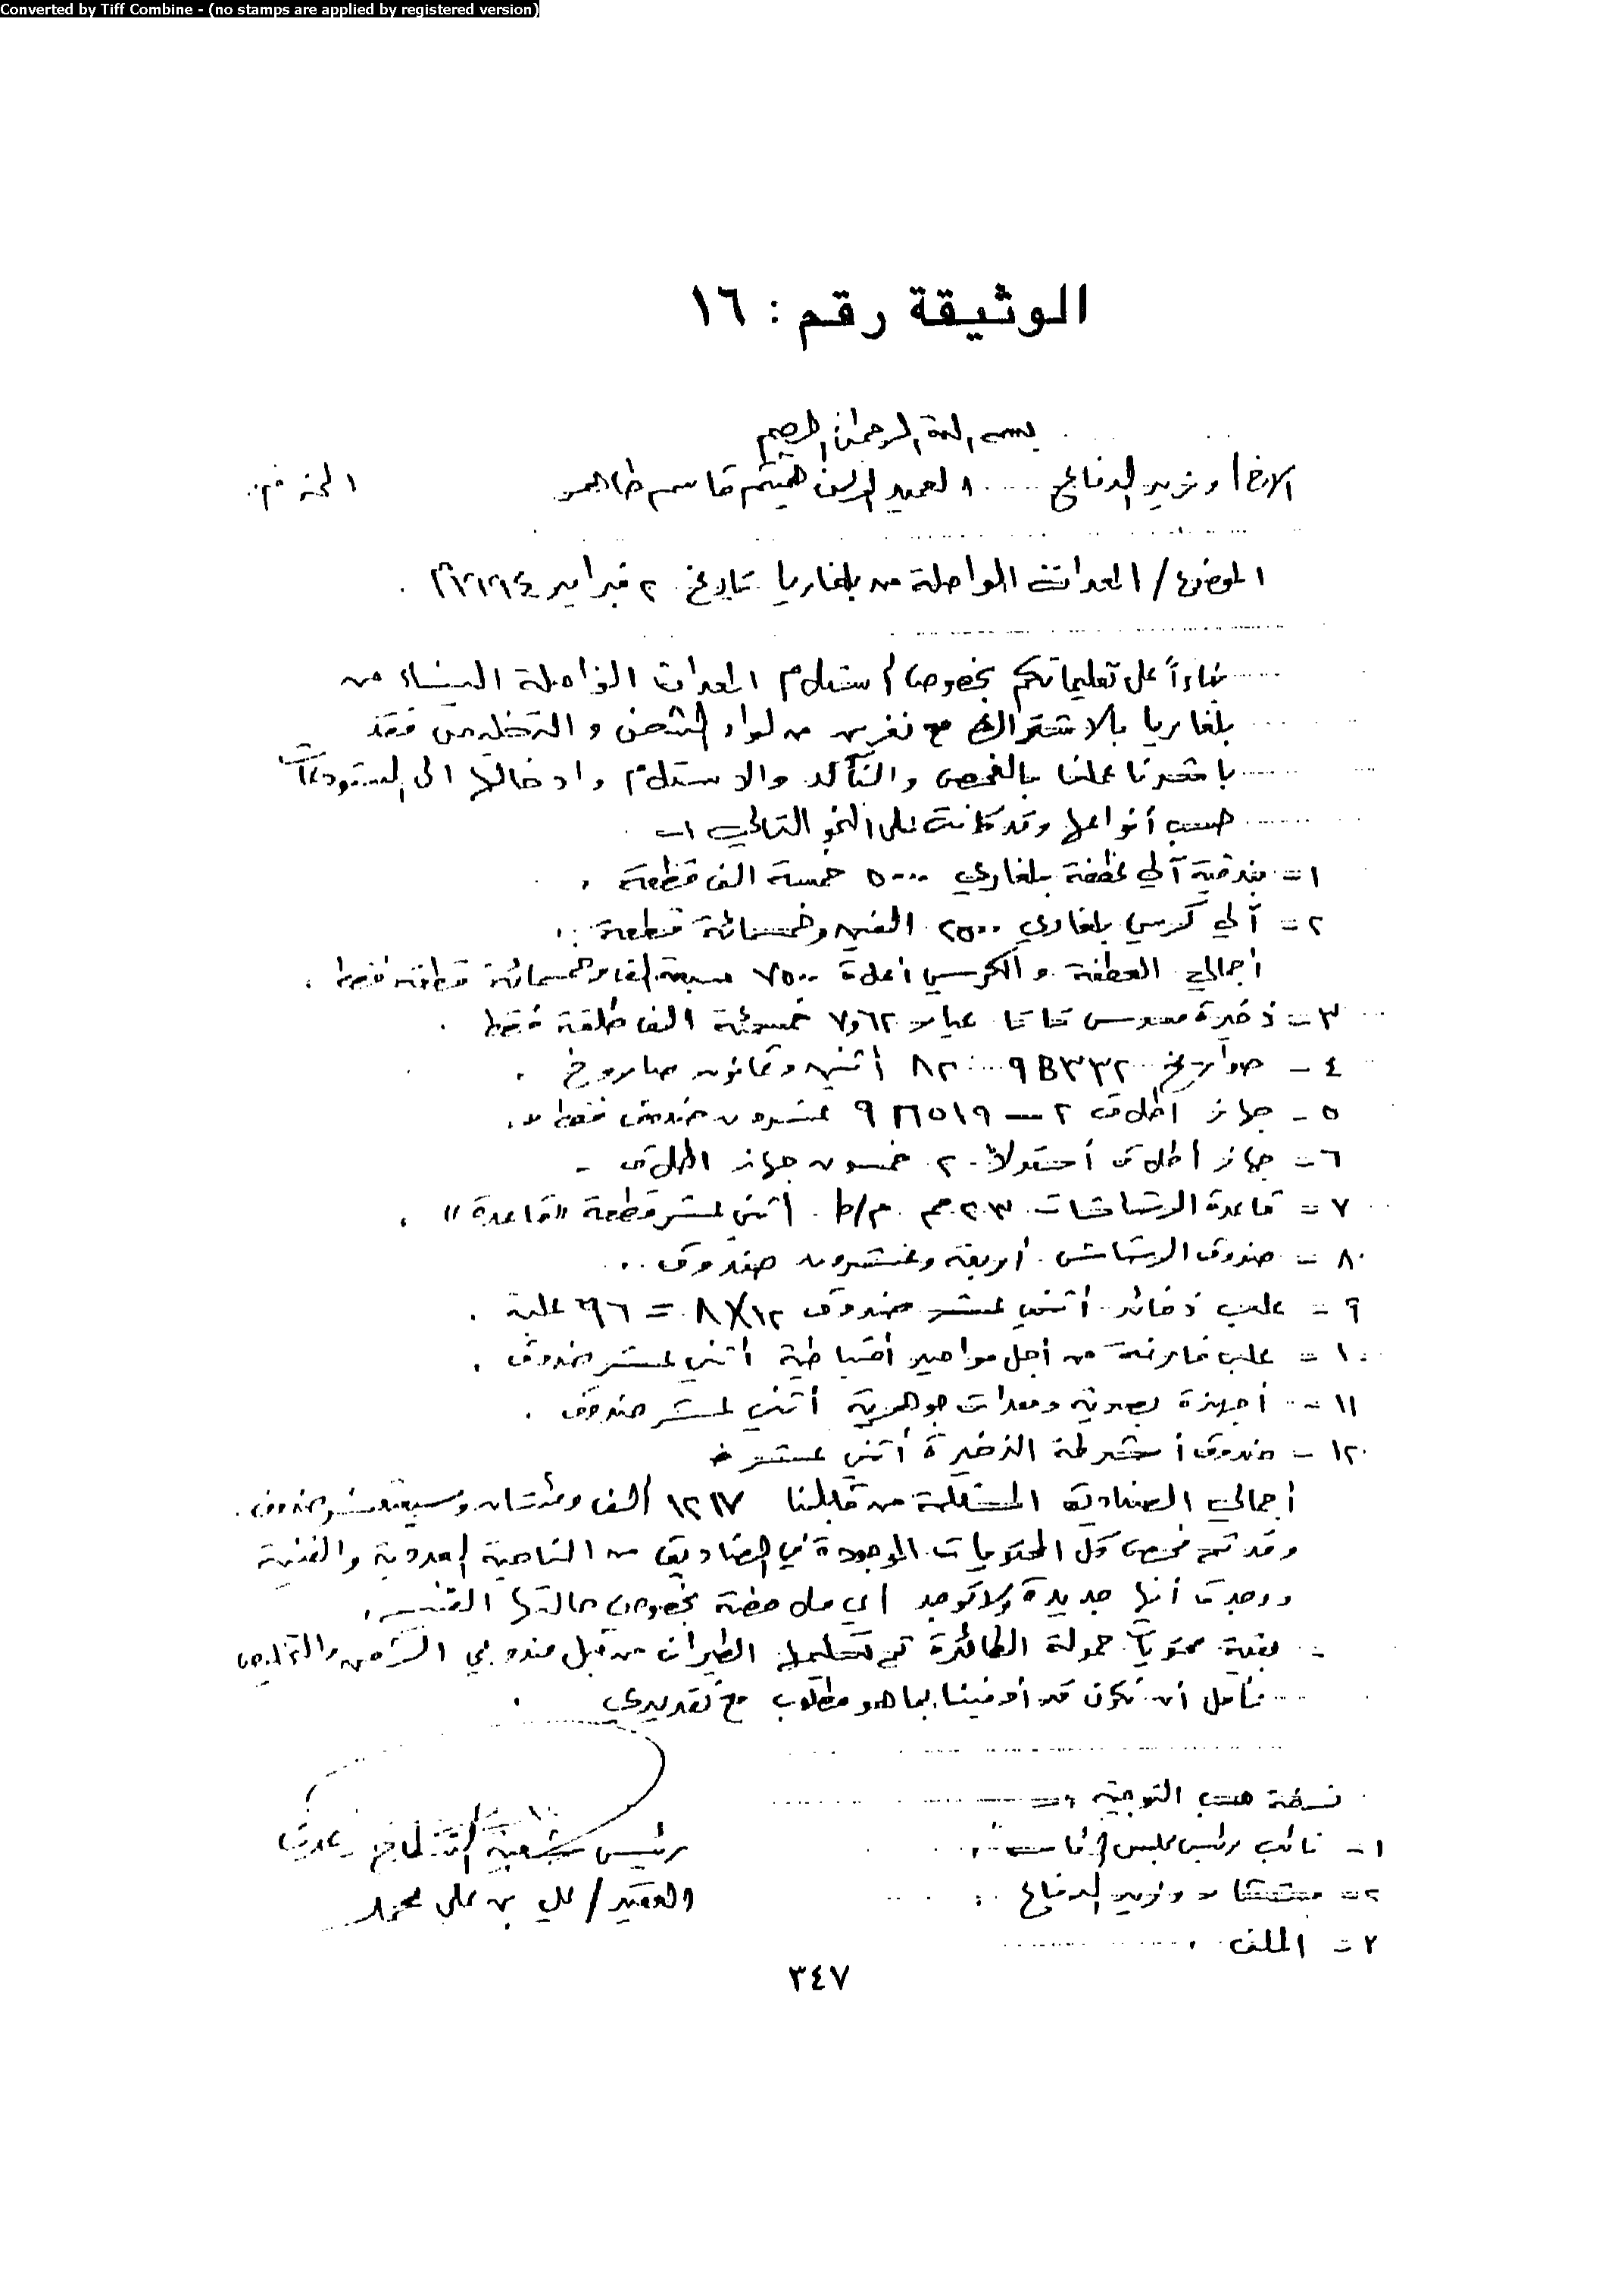 Converted by Tiff Combine - (no stamps are applied by registered version)
الوثيقة رقم : ١٦
بسم الله الرحمن الرحيم
الاخ/ وزير الدفاع ..... العميد الركن هيثم قاسم طاهر المحترم
الموضوع/ المعدات الواصلة من بلغاريا بتاريخ ٢ فبراير ٩٤
بناءاً على تعليماتكم بخصوص استلام المعدات الواصلة الينا من
بلغاريا بالاشتراك مع نفرين من لواء الشحن والتخليص فقد
باشرنا عملنا بالفحص والتأكد والاستلام وادخالها الى المستودعات
حسب أنواعها وقد كانت على النحو التالي :-
١ - بندقية آلي عطفة بلغاري ٥٠٠٠ خمسة الف قطعة .
٢ - آلي كرسي بلغاري ٢٥٠٠ الفين وخمسمائة قطعة .
أجمالي العطفة والكرسي أعلاه ٧٥٠٠ سبعة الف وخمسمائة قطعة فقط .
٣ - ذخيرة مسدس تاتا عيار ٧,٦٢ خمسمئة الف طلقة فقط .
٤ - صواريخ ٩B٣٣٢ ٨٢ أثنين وثمانون صاروخ .
٥ - جهاز أطلاق ٢ — ٩П٥١٩ عشرون صندوق فقط .
٦ - جهاز أطلاق أستولا - ٢ خمسون جهاز اطلاق -
٧ - قاعدة الرشاشات ٢٣ مم م/ط أثني عشر قطعة "قاعدة" .
٨ - صندوق الرشاش أربعة وعشرون صندوق ..
٩ - علب ذخائر أثني عشر صندوق ١٢×٨ = ٩٦ علبة .
١٠ - علب فارغة من اجل مواصير احتياطية أثني عشر صندوق .
١١ - أجهزة بصرية ومعدات جوهرية أثني عشر صندوق .
١٢ - صندوق أشرطة الذخيرة أثني عشر
أجمالي الصناديق المستلمة من قبلنا ١٢١٧ ألف ومئتان وسبعة عشر صندوق .
وقد تم فحص كل المحتويات الموجودة في الصناديق من الناحية العددية والفنية
ووجدت أنها جديدة ولا توجد اي ملاحظة بخصوص حالتها الفنية .
- بقية محتويات حمولة الطائرة تم تسليمها الطيران من قبل مندوبي الشحن والتخليص
نأمل أن نكون قد أوفينا بما هو مطلوب مع تقديري .
نسخة حسب التوجيه :-
١ - نائب رئيس مجلس الرئاسة رئيس شعبة التسليح عدن
٢ - مستشار وزير الدفاع العقيد/ علي بن علي محمد
٢ - الملف .
٣٤٧